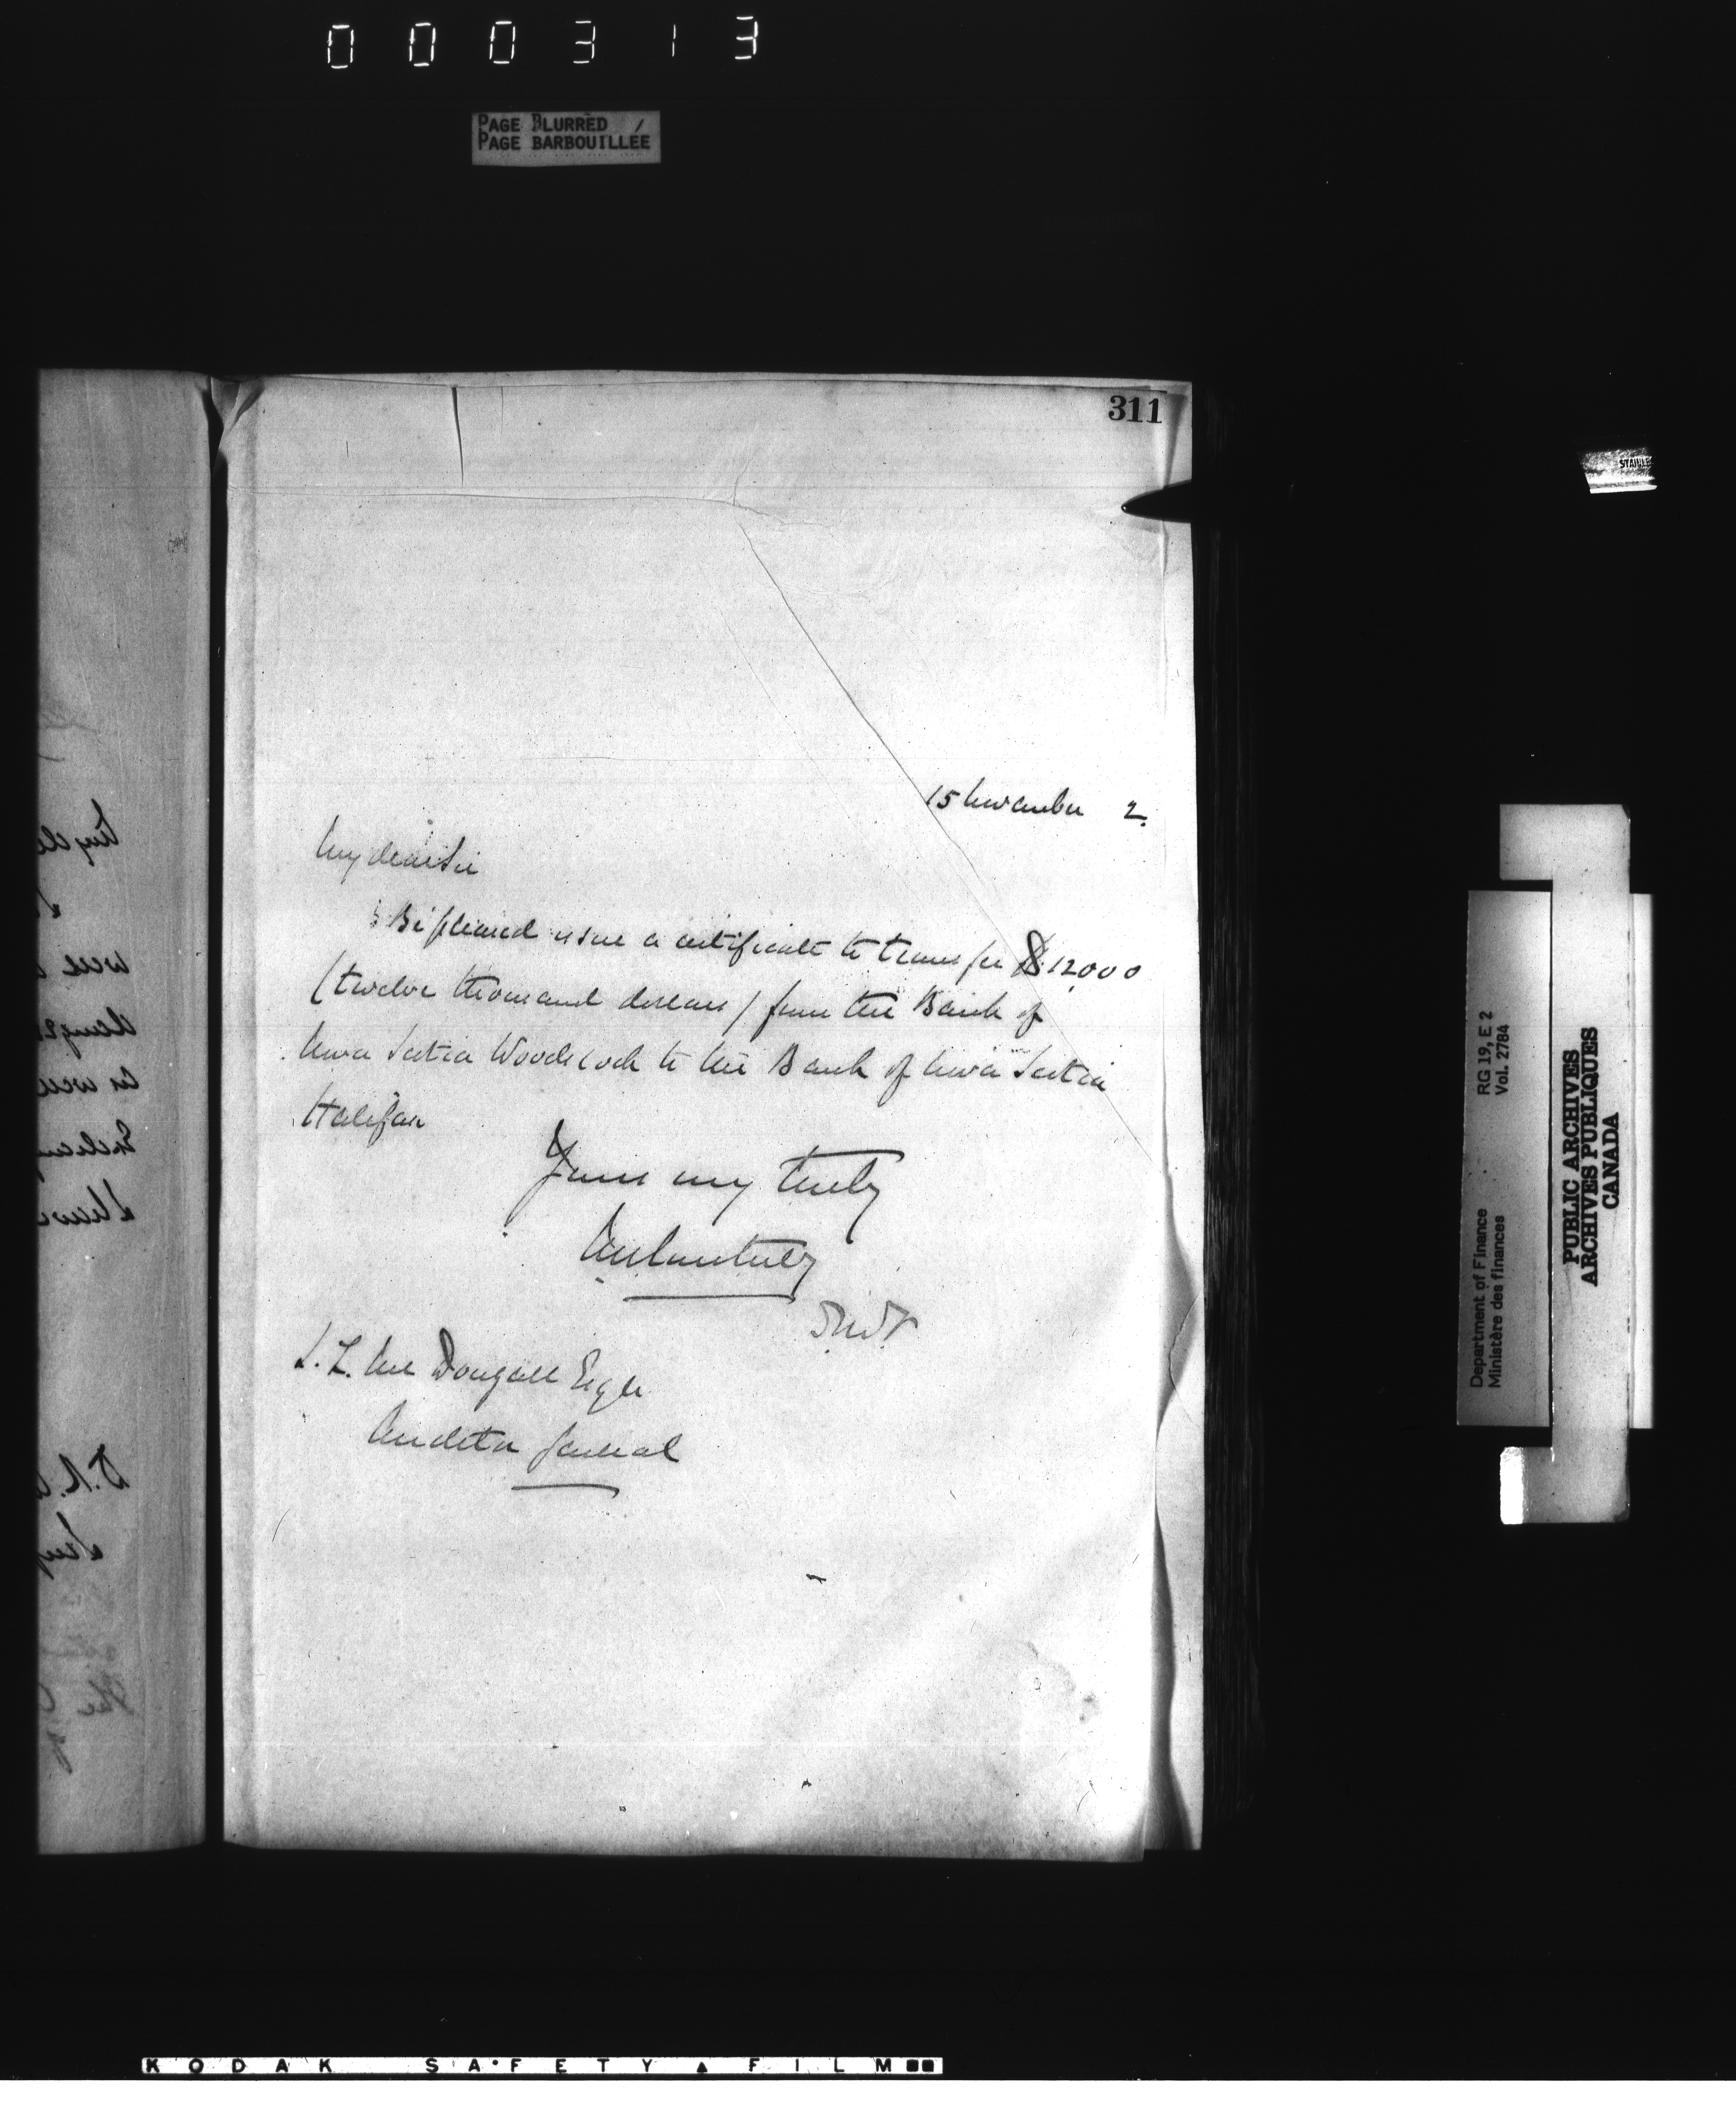 000313
PAGE BLURRED
PAGE BARBOUILLÉE
311
15 November 2.
My dear Sir
Be pleased issue a certificate to transfer $12,000
(twelve thousand dollars) from the Bank of
Nova Scotia Woodstock to the Bank of Nova Scotia
Halifax
Yours very truly
J. L. McDougall Esqr
Auditor General
STAINLE
RG 19, E 2
Vol. 2784
Department of Finance
Ministère des finances
PUBLIC ARCHIVES
ARCHIVES PUBLIQUES
CANADA
KODAK SAFETY FILM